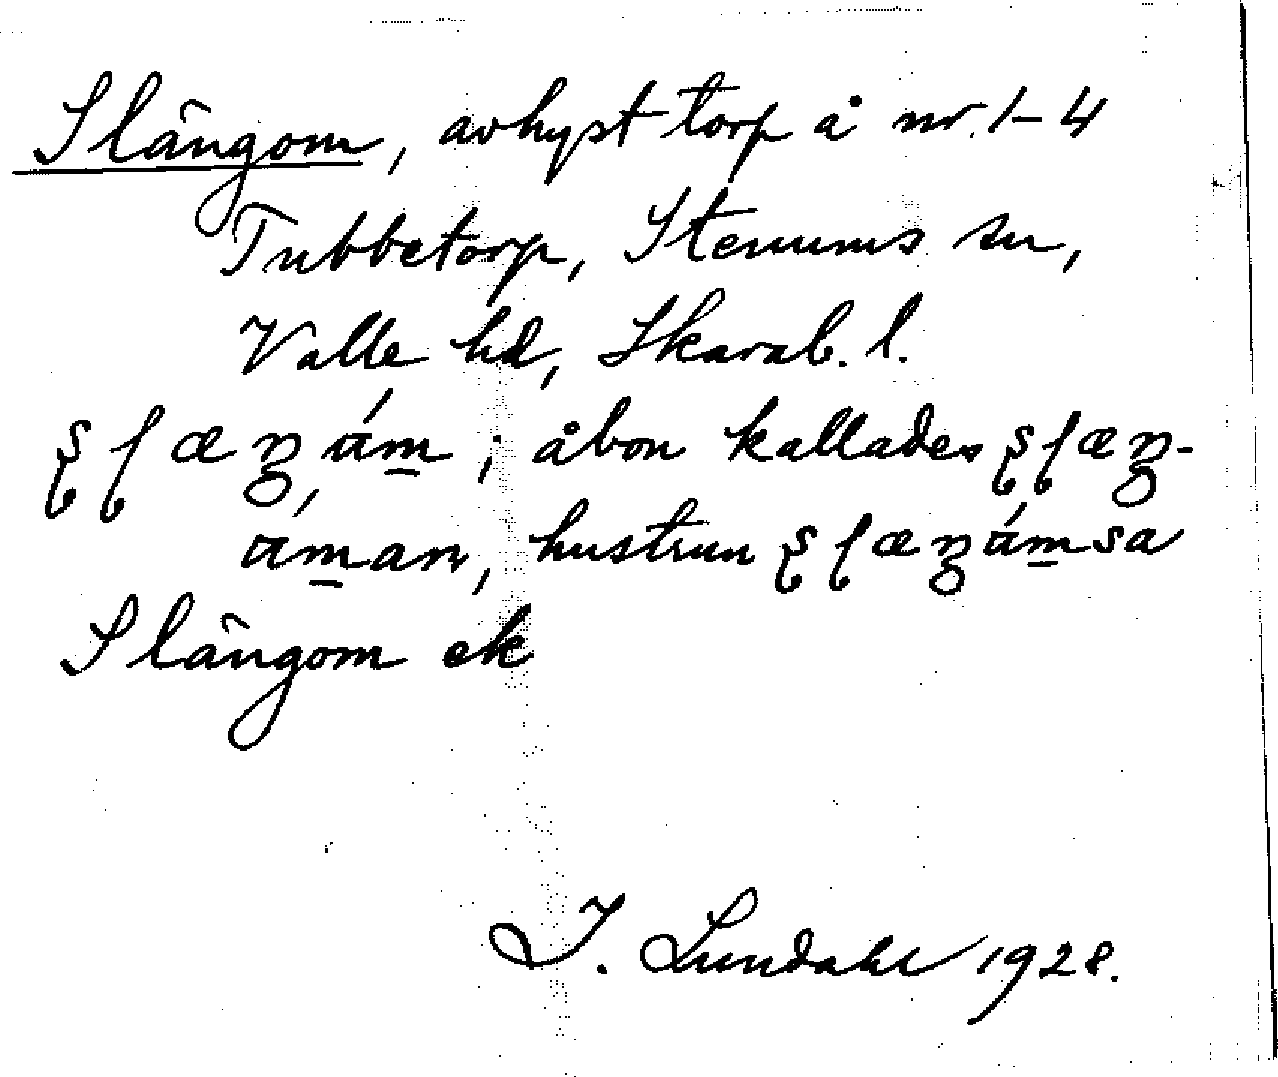 Slängom, avhyst torp å nr. 1-4
Tubbetorp, Stenums sn,
Valle hd, Skarab. l.
ʂɭæŋám̱; åbon kallades ʂɭæŋ-
ám̱an, hustrun ʂɭæŋám̱sa
Slängom ek
I. Lundahl 1928.